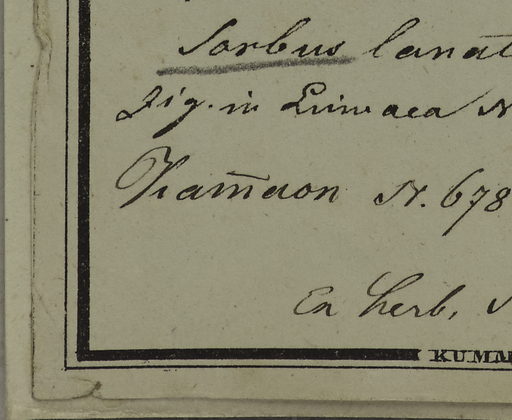 Sorbus lanat
Fig. in Linnaea N
N. 678
Ex herb.
KUMM